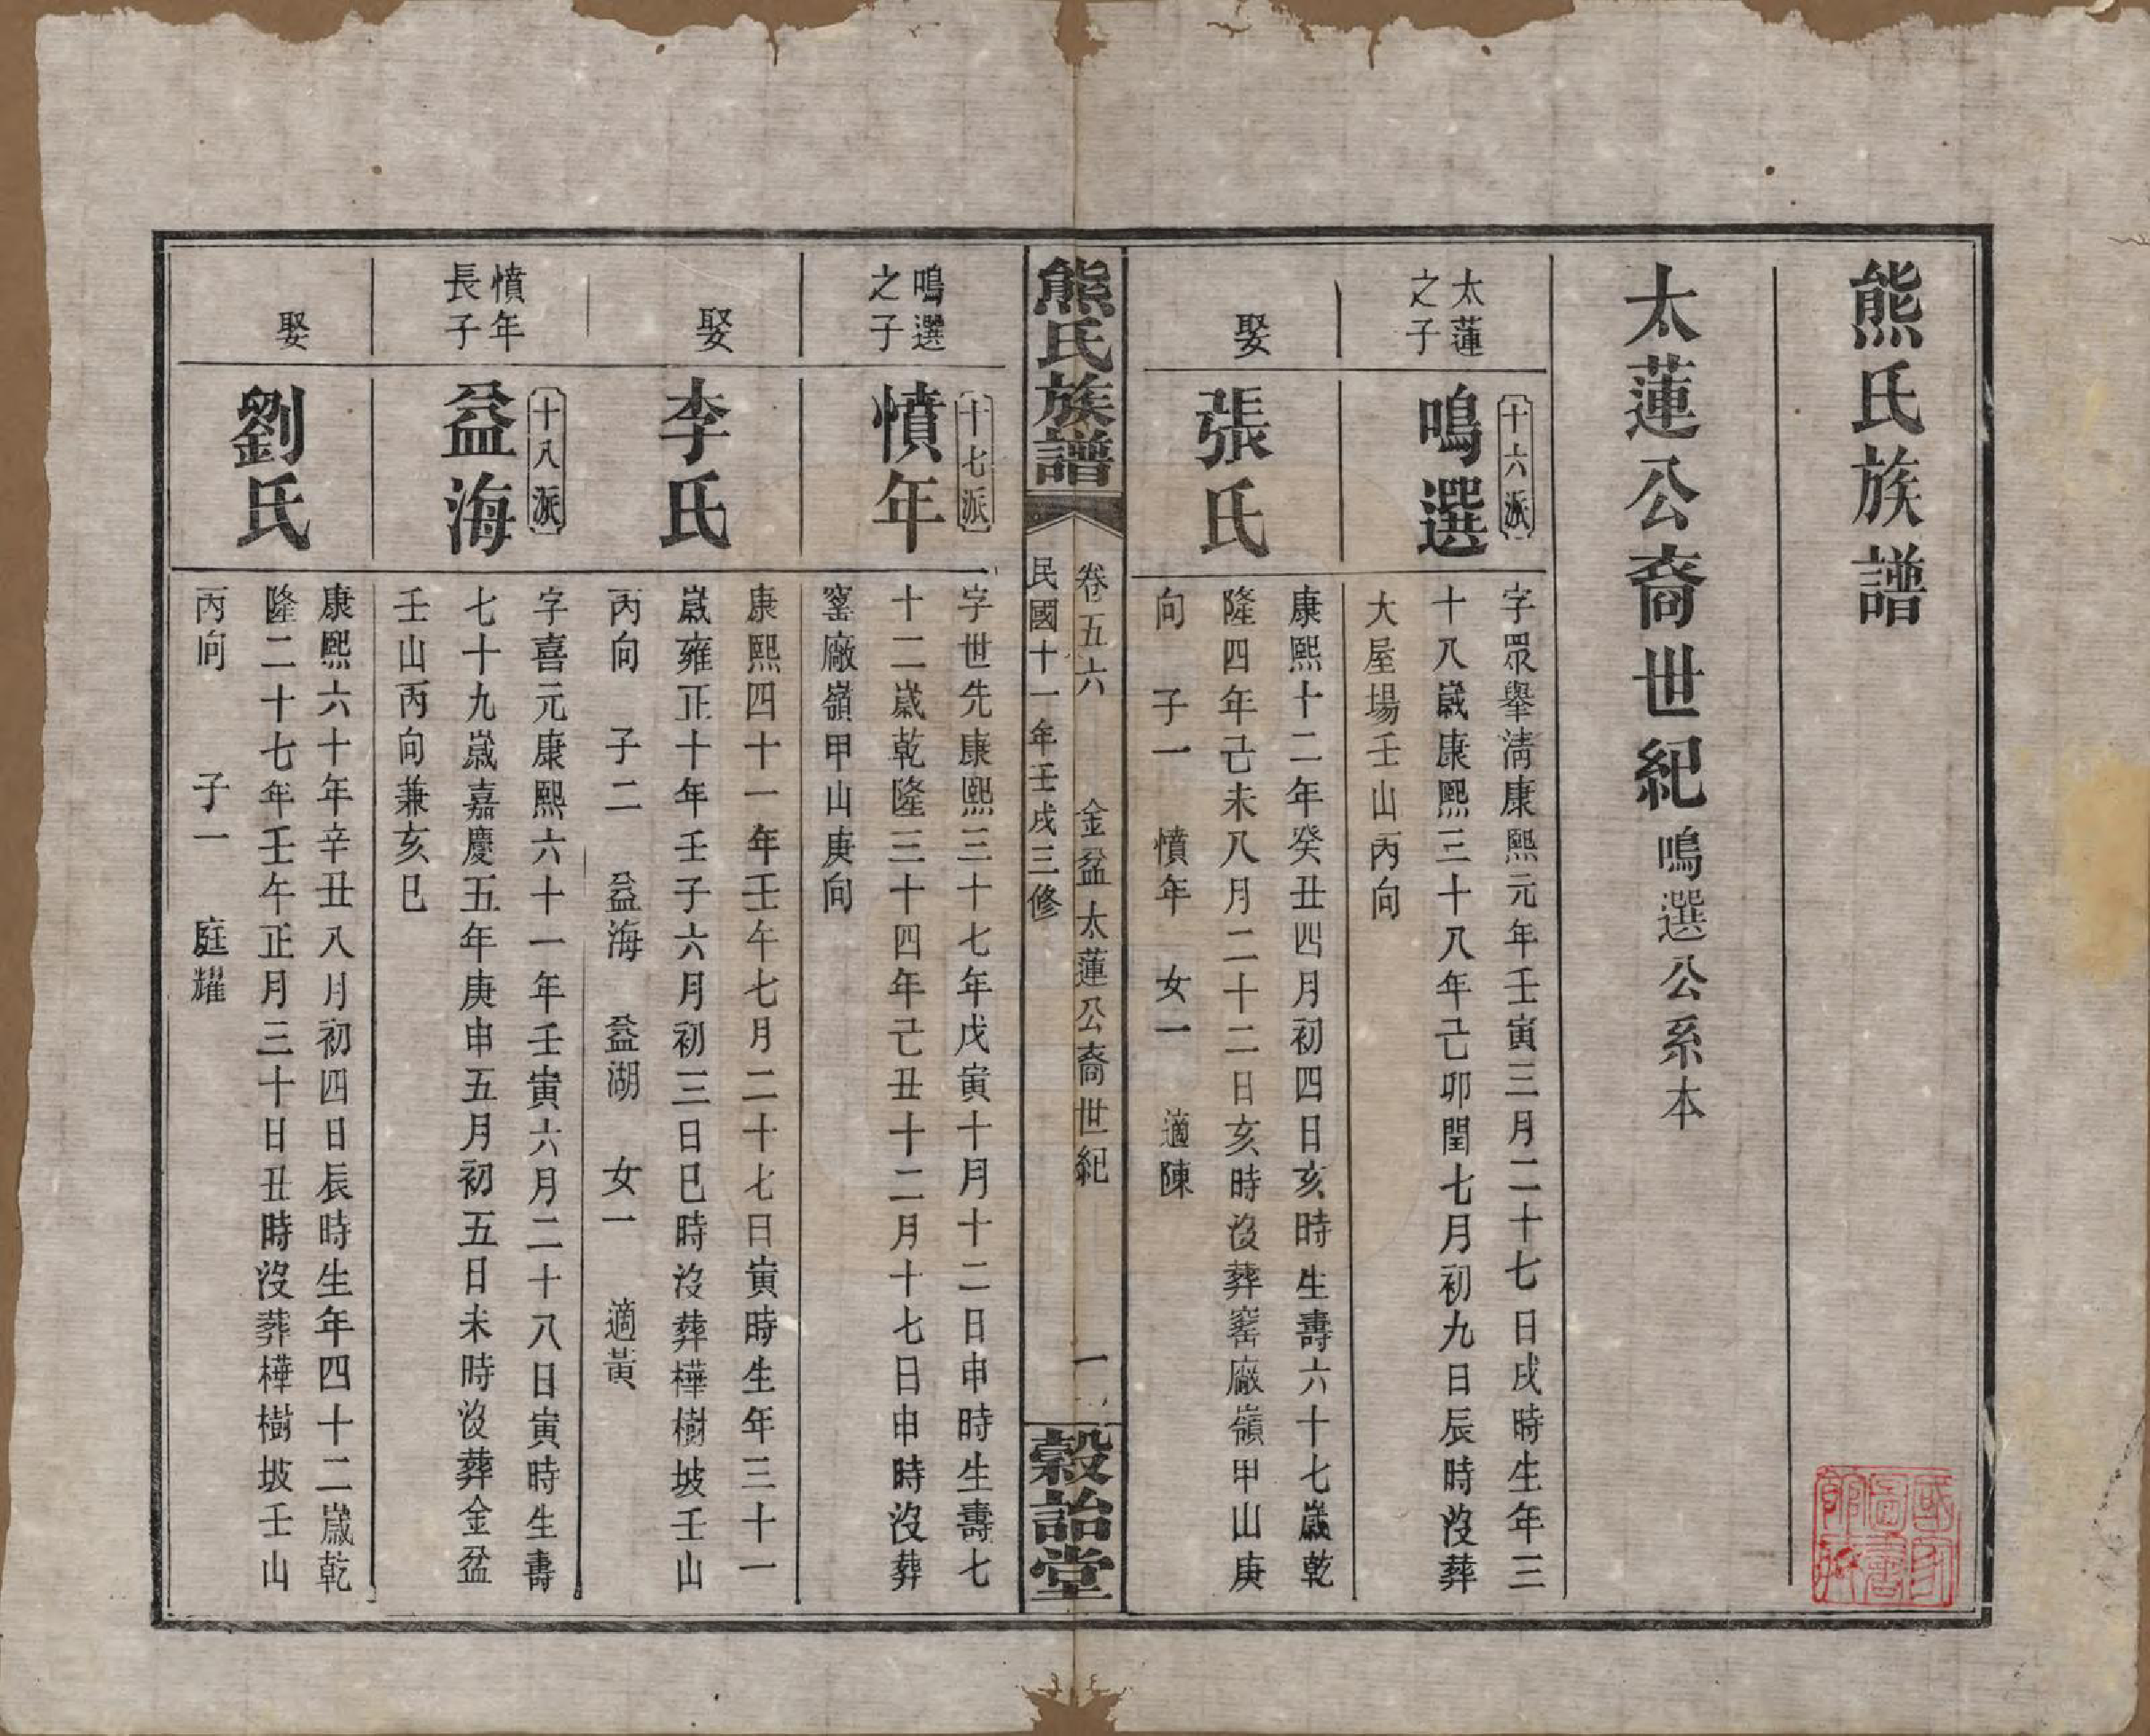 熊氏族譜
太蓮公裔世紀鳴選公系本
太蓮
之子
十六派
鳴選
字眾舉清康熙元年壬寅三月二十七日戌時生年三
十八歲康熙三十八年己卯閏七月初九日辰時沒葬
大屋場壬山丙向
娶
張氏
康熙十二年癸丑四月初四日亥時生壽六十七歲乾
隆四年己未八月二十二日亥時沒葬窰廠嶺甲山庚
向 子一 憤年 女一 適陳
熊氏族譜
卷五六 金盆太蓮公裔世紀 一
民國十一年壬戌三修
穀詒堂
鳴選
之子
十七派
憤年
字世先康熙三十七年戊寅十月十二日申時生壽七
十二歲乾隆三十四年己丑十二月十七日申時沒葬
窰廠嶺甲山庚向
娶
李氏
康熙四十一年壬午七月二十七日寅時生年三十一
歲雍正十年壬子六月初三日巳時沒葬樺樹坡壬山
丙向 子二 益海 益湖 女一 適黃
憤年
長子
十八派
益海
字喜元康熙六十一年壬寅六月二十八日寅時生壽
七十九歲嘉慶五年庚申五月初五日未時沒葬金盆
壬山丙向兼亥巳
娶
劉氏
康熙六十年辛丑八月初四日辰時生年四十二歲乾
隆二十七年壬午正月三十日丑時沒葬樺樹坡壬山
丙向 子一 庭耀